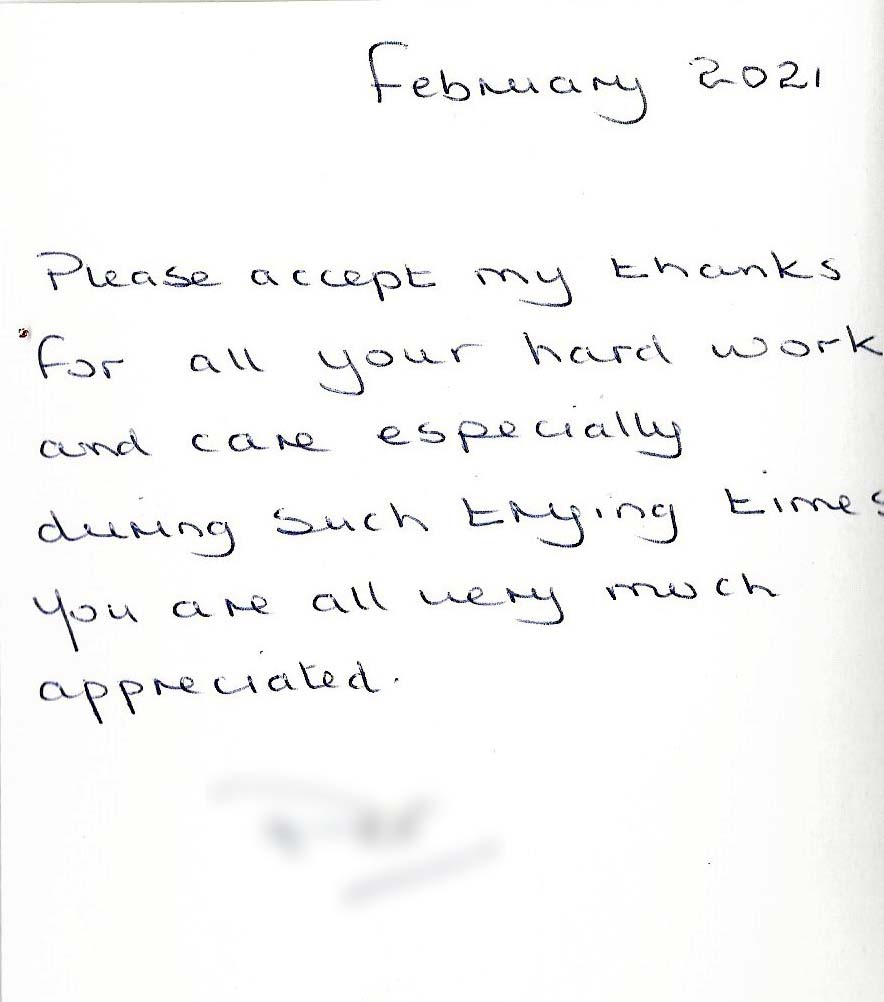 February 2021
Please accept my thanks
for all your hard work
and care especially
during such trying times
you are all very much
appreciated.